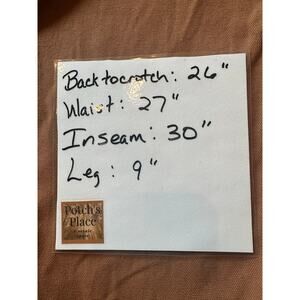 Back to crotch: 26"
Waist: 27"
Inseam: 30"
Leg: 9"
Potch's
Place